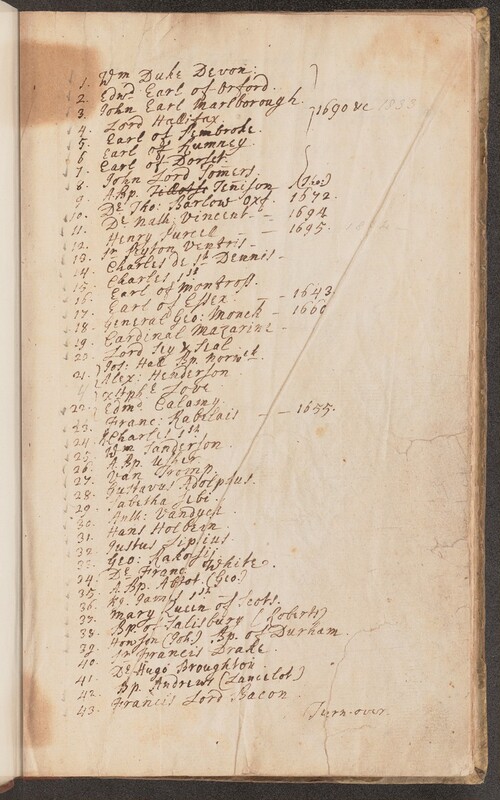 1. Wm Duke Devon:
2. Edwd Earl of Orford.
3. John Earl Marlborough.
4. Lord Hallifax. 1690 &c
5. Earl of Pembroke.
6. Earl of Rumney.
7. Earl of Dorset.
8. John Lord Somers
9. ABp. Tenison (Tho:)
10. Dr Tho: Barlow Oxf. 1672
11. Dr Nath: Vincent - 1694
12. Henry Purcel - - 1695
13. Sr Peyton Ventris -
14. Charles de St Dennis -
15. Charles 1st
16. Earl of Montross.
17. Earl of Essex.
18. General Geo: Monck - 1643
19. Cardinal Mazarine - 1660
20. Lord Sey & Seal
21. Jos: Hall Bp. Norwch
Alex: Henderson
Xtophr Love
22. Edmd Calamy.
23. Franc: Rabelais - - 1655.
24. Charles 1st
25. Wm Sanderson.
26. ABp. Usher
27. Van Tromp.
28. Gustavus Adolphus.
29. Tabitha
30. Anth: Vandyck
31. Hans Holbein
32. Justus Lipsius.
33. Geo: Rakossij
34. Dr Franc White.
35. ABp. Abbot (Geo)
36. Kg. James 1st
37. Mary Queen of Scots.
38. Bp. of Salisbury (Roberts)
39. Howson (Joh:) Bp. of Durham.
40. Sr Francis Drake.
41. Dr Hugo Broughton
42. Bp. Andrews (Lancelot)
43. Francis Lord Bacon
Turn-over.